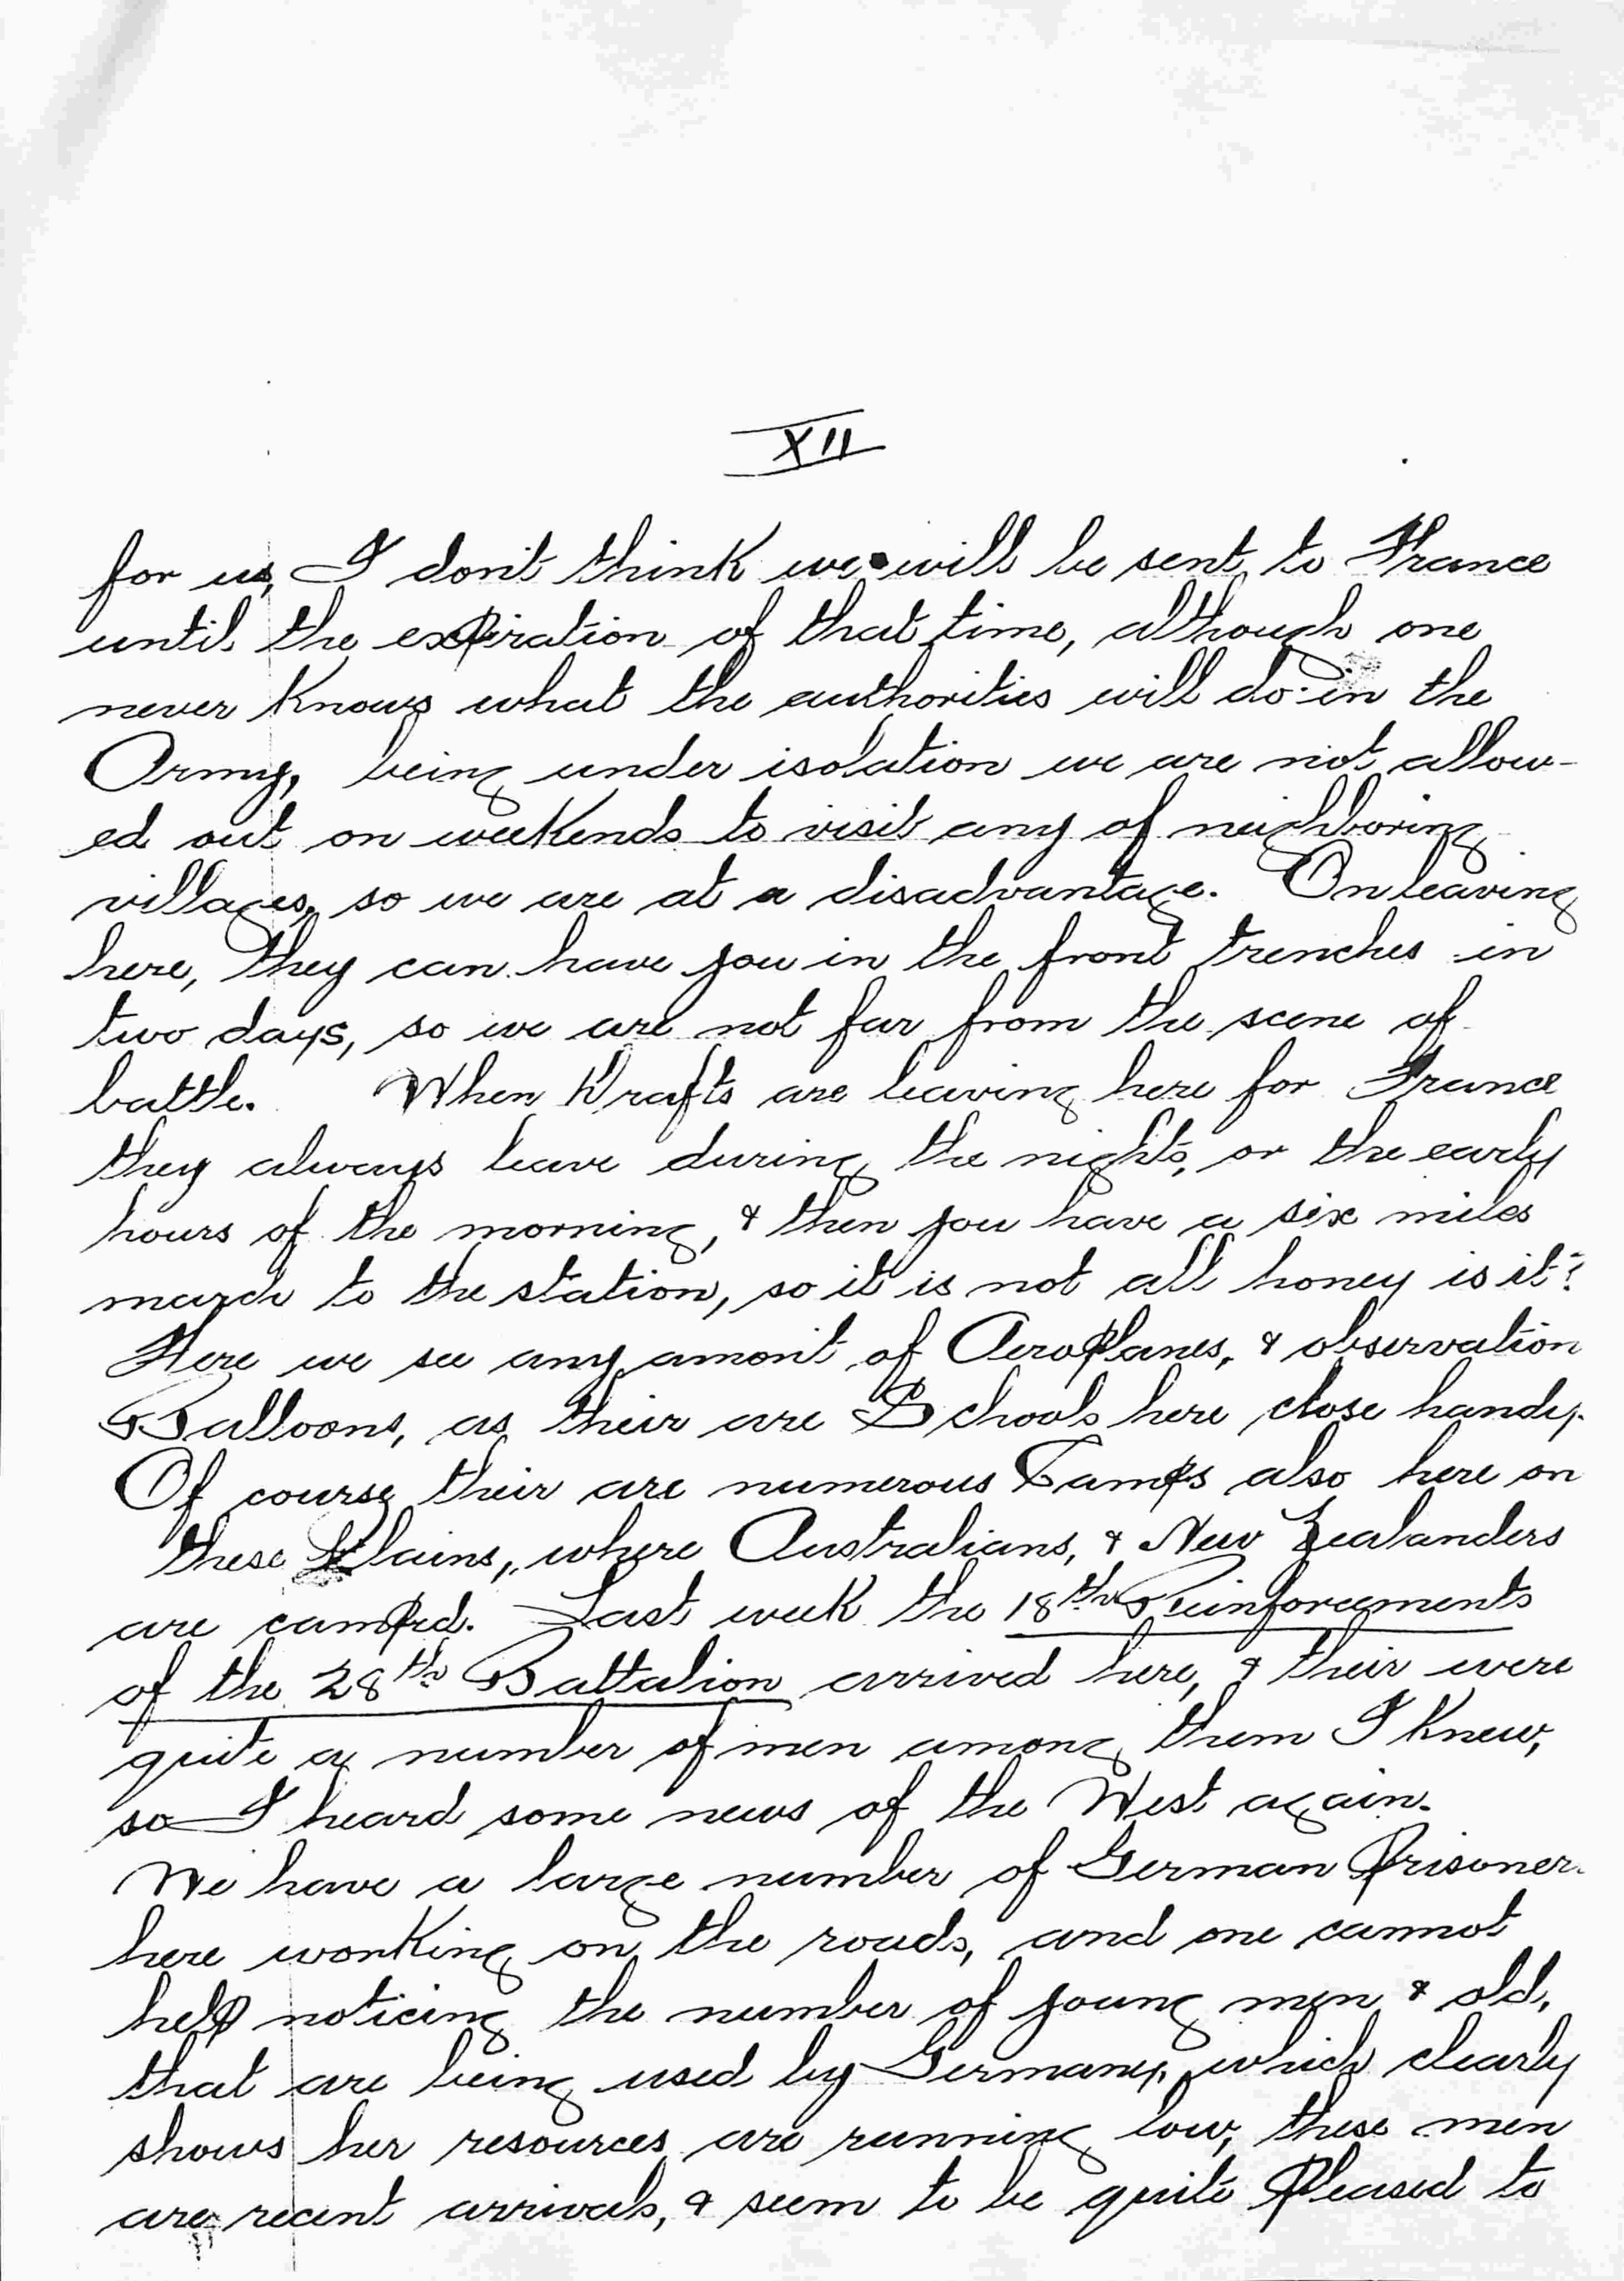 XII
for us, I don't think we will be sent to France
until the expiration of that time, although one
never knows what the authorities will do in the
Army, being under isolation we are not allow-
ed out on weekends to visit any of neighboring
villages, so we are at a disadvantage. On leaving
here, they can have you in the front trenches in
two days, so we are not far from the scene of
battle. When Drafts are leaving here for France
they always leave during the nights, or the early
hours of the morning, & then you have a six miles
march to the station, so it is not all honey is it?
Here we see any amont of Aeroplanes, & observation
Balloons, as their are Schools here close handy.
Of course their are numerous Camps also here on
these Plains, where Australians, & New Zealanders
are campd. Last week the 18th Reinforcements
of the 28th Battalion arrived here, & their were
quite a number of men among them I knew,
so I heard some news of the West again.
We have a large number of German Prisoner
here working on the roads, and one cannot
help noticing the number of young men & old,
that are being used by Germany, which clearly
shows her resources are running low, these men
are recent arrivals, & seem to be quite pleased to